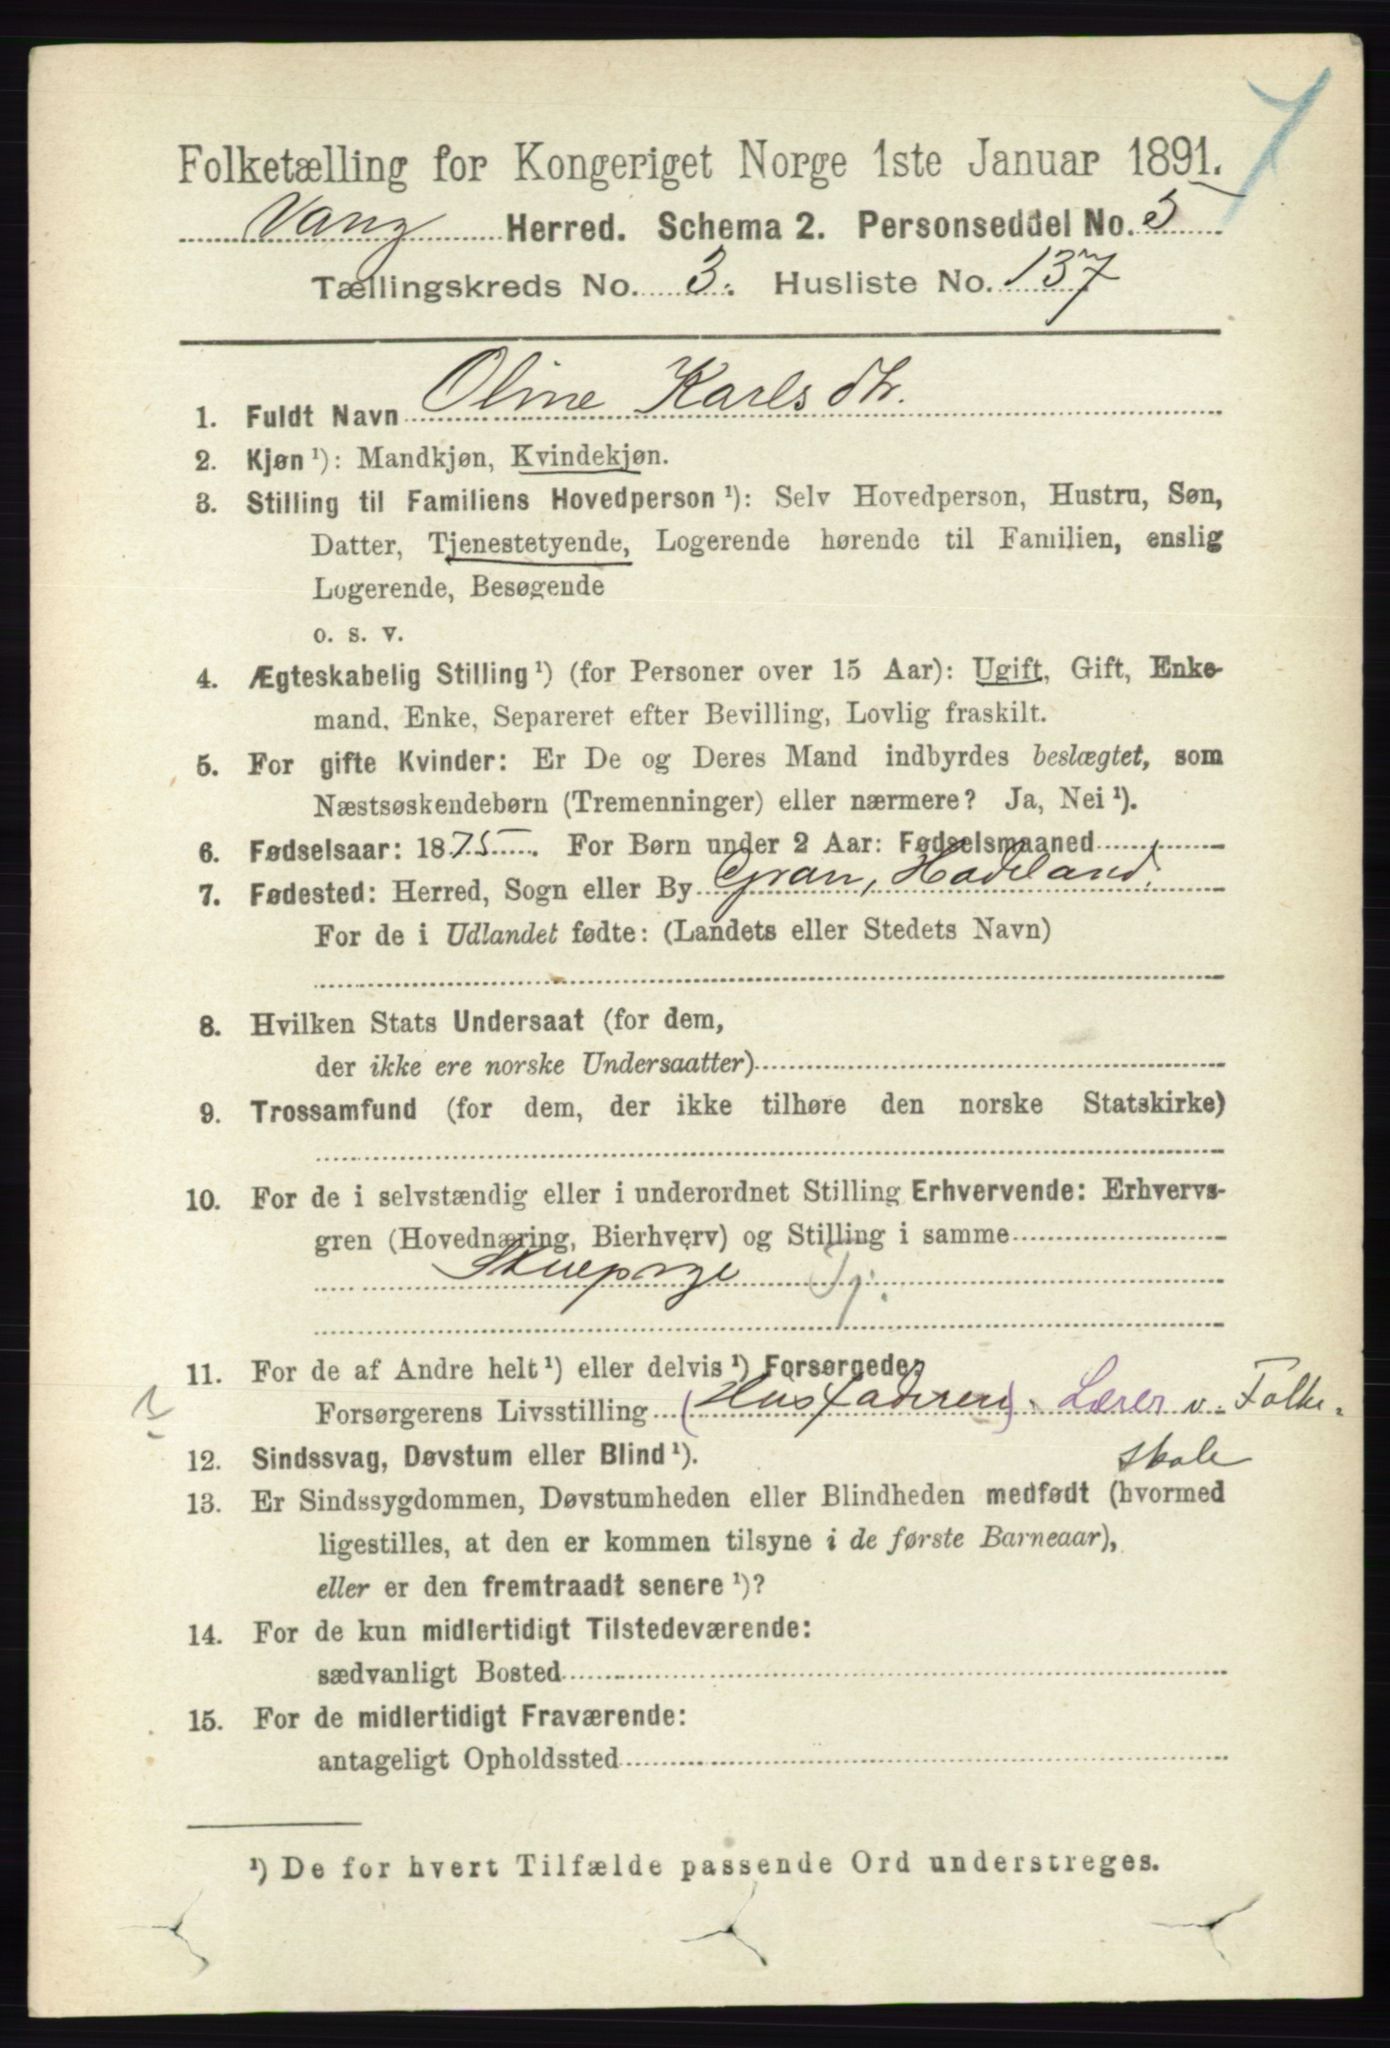 7
Folketælling for Kongeriget Norge 1ste Januar 1891.
Vang Herred. Schema 2. Personseddel No. 5
Tællingskreds No. 3. Husliste No. 137
1. Fuldt Navn Oline Karlsdtr.
2. Kjøn ¹): Mandkjøn, Kvindekjøn.
3. Stilling til Familiens Hovedperson ¹): Selv Hovedperson, Hustru, Søn,
Datter, Tjenestetyende, Logerende hørende til Familien, enslig
Logerende, Besøgende
o. s. v.
4. Ægteskabelig Stilling ¹) (for Personer over 15 Aar): Ugift, Gift, Enke-
mand, Enke, Separeret efter Bevilling, Lovlig fraskilt.
5. For gifte Kvinder: Er De og Deres Mand indbyrdes beslægtet, som
Næstsøskendebørn (Tremenninger) eller nærmere? Ja, Nei ¹).
6. Fødselsaar: 1875. For Børn under 2 Aar: Fødselsmaaned
7. Fødested: Herred, Sogn eller By Gran, Hadeland.
For de i Udlandet fødte: (Landets eller Stedets Navn)
8. Hvilken Stats Undersaat (for dem,
der ikke ere norske Undersaatter)
9. Trossamfund (for dem, der ikke tilhøre den norske Statskirke)
10. For de i selvstændig eller i underordnet Stilling Erhvervende: Erhvervs-
gren (Hovednæring, Bierhverv) og Stilling i samme
Stuepige Tj.
11. For de af Andre helt ¹) eller delvis ¹) Forsørgede:
Forsørgerens Livsstilling (Husfaderen). Lærer v. Folke-
skole
12. Sindssvag, Døvstum eller Blind ¹).
13. Er Sindssygdommen, Døvstumheden eller Blindheden medfødt (hvormed
ligestilles, at den er kommen tilsyne i de første Barneaar),
eller er den fremtraadt senere ¹)?
14. For de kun midlertidigt Tilstedeværende:
sædvanligt Bosted
15. For de midlertidigt Fraværende:
antageligt Opholdssted
¹) De for hvert Tilfælde passende Ord understreges.